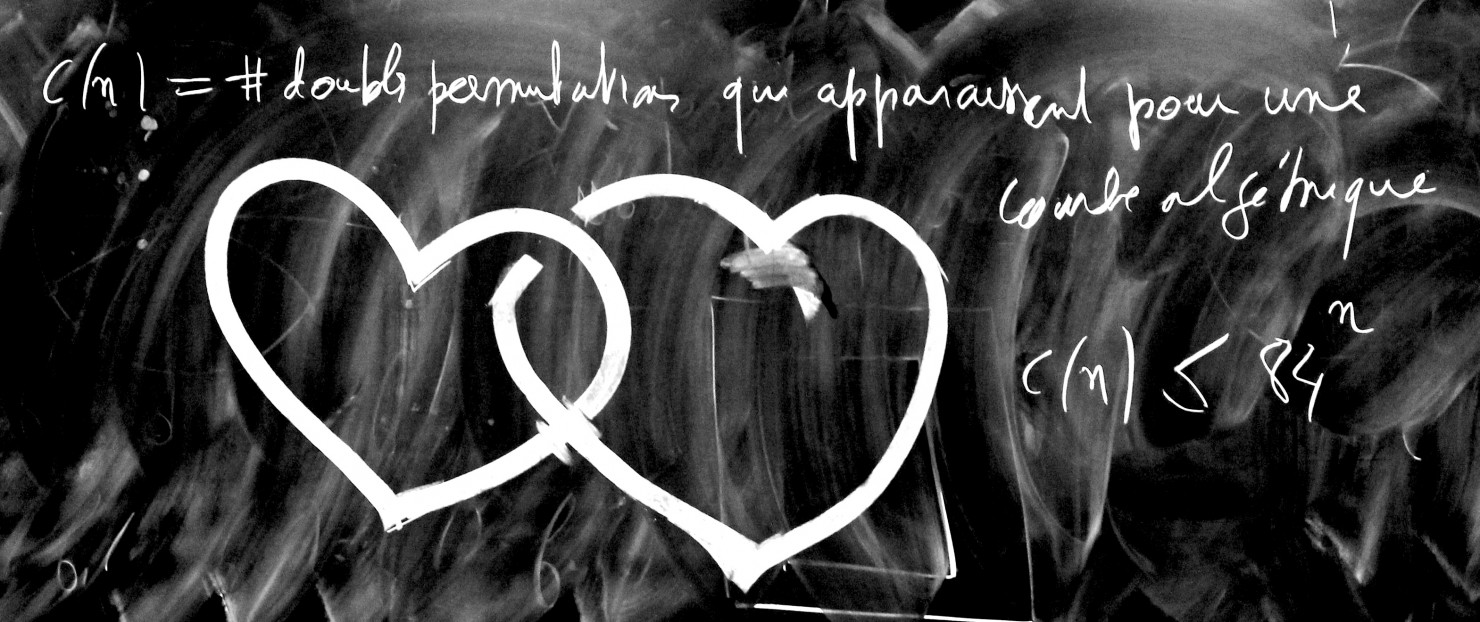 c(n) = # double permutations qui apparaissent pour une
courbe algébrique
c(n) ≤ 84ⁿ